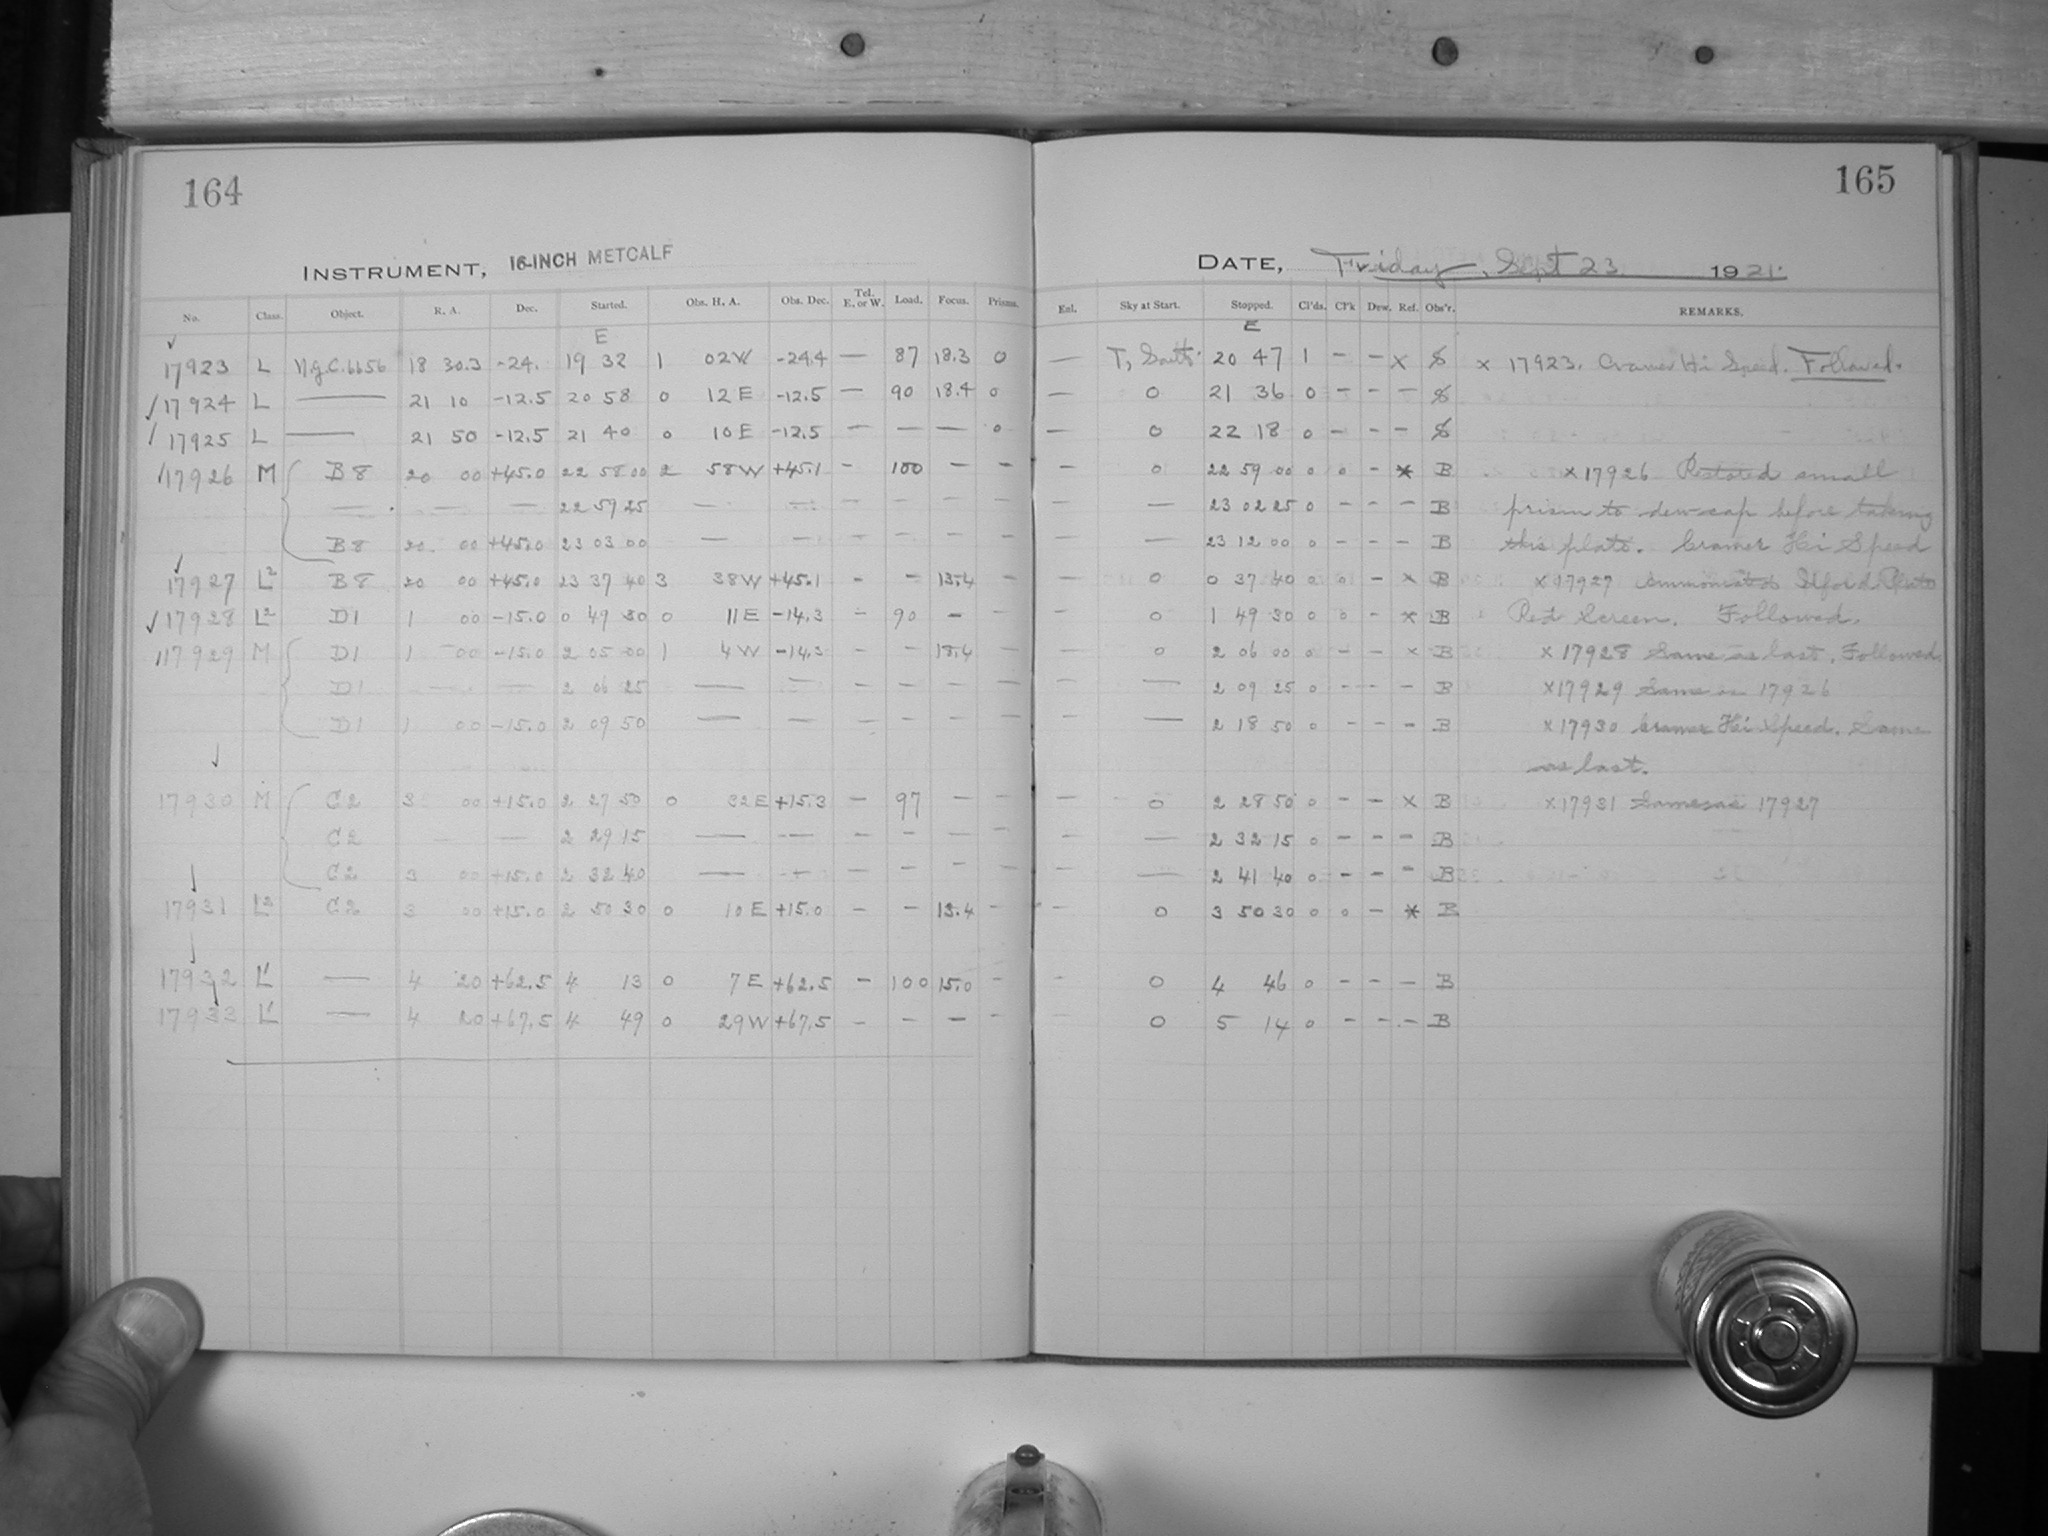 164
INSTRUMENT, 16-INCH METCALF
No. Class. Object. R. A. Dec. Started. Obs. H. A. Obs. Dec. Tel. E. or W. Load. Focus. Prisms.
E
17923 L N.G.C. 6656 18 30.3 -24. 19 32 1 02 W -24.4 — 87 18.3 0
17924 L — 21 10 -12.5 20 58 0 12 E -12.5 — 90 18.4 0
17925 L — 21 50 -12.5 21 40 0 10 E -12.5 — — — 0
17926 M B8 20 00 +45.0 22 58 00 2 58 W +45.1 - 100 - -
— — — 22 59 25 — — - - - -
B8 20 00 +45.0 23 03 00 — — - - - -
17927 L2 B8 20 00 +45.0 23 37 40 3 38 W +45.1 - - 13.4 -
17928 L2 D1 1 00 -15.0 0 49 30 0 11 E -14.3 - 90 - -
17929 M D1 1 00 -15.0 2 05 00 1 4 W -14.3 - - 18.4 -
D1 — — 2 06 25 — — - - - -
D1 1 00 -15.0 2 09 50 — — - - - -
17930 M C2 3 00 +15.0 2 27 50 0 32 E +15.3 - 97 - -
C2 — — 2 29 15 — — - - - -
C2 3 00 +15.0 2 32 40 — — - - - -
17931 L2 C2 3 00 +15.0 2 50 30 0 10 E +15.0 - - 13.4 -
17932 L1 — 4 20 +62.5 4 13 0 7 E +62.5 - 100 15.0 -
17933 L1 — 4 20 +67.5 4 49 0 29 W +67.5 - - - -
165
DATE, Friday, Sept 23 1921.
Enl. Sky at Start. Stopped. Cl'ds. Cl'k Dew. Ref. Obs'r. REMARKS.
E
— 20 47 1 - - x x 17923. Cramer Hi Speed. Followed.
— 0 21 36 0 - - -
— 0 22 18 0 - - -
- 0 22 59 00 0 0 - x B x 17926 Restored small
- — 23 02 25 0 - - - B prism to dew-cap before taking
- — 23 12 00 0 - - - B this plate. Cramer Hi Speed
- 0 0 37 40 0 0 - x B x 17927 Ammoniated Ilford
- 0 1 49 30 0 0 - x B Red Screen. Followed.
- 0 2 06 00 0 - - x B x 17928 Same as last. Followed
- — 2 09 25 0 - - - B x 17929 Same as 17926
- — 2 18 50 0 - - - B x 17930 Cramer Hi Speed. Same
as last.
- 0 2 28 50 0 - - x B x 17931 Same as 17927
- — 2 32 15 0 - - - B
- — 2 41 40 0 - - - B
- 0 3 50 30 0 0 - x B
- 0 4 46 0 - - - B
0 5 14 0 - - - B